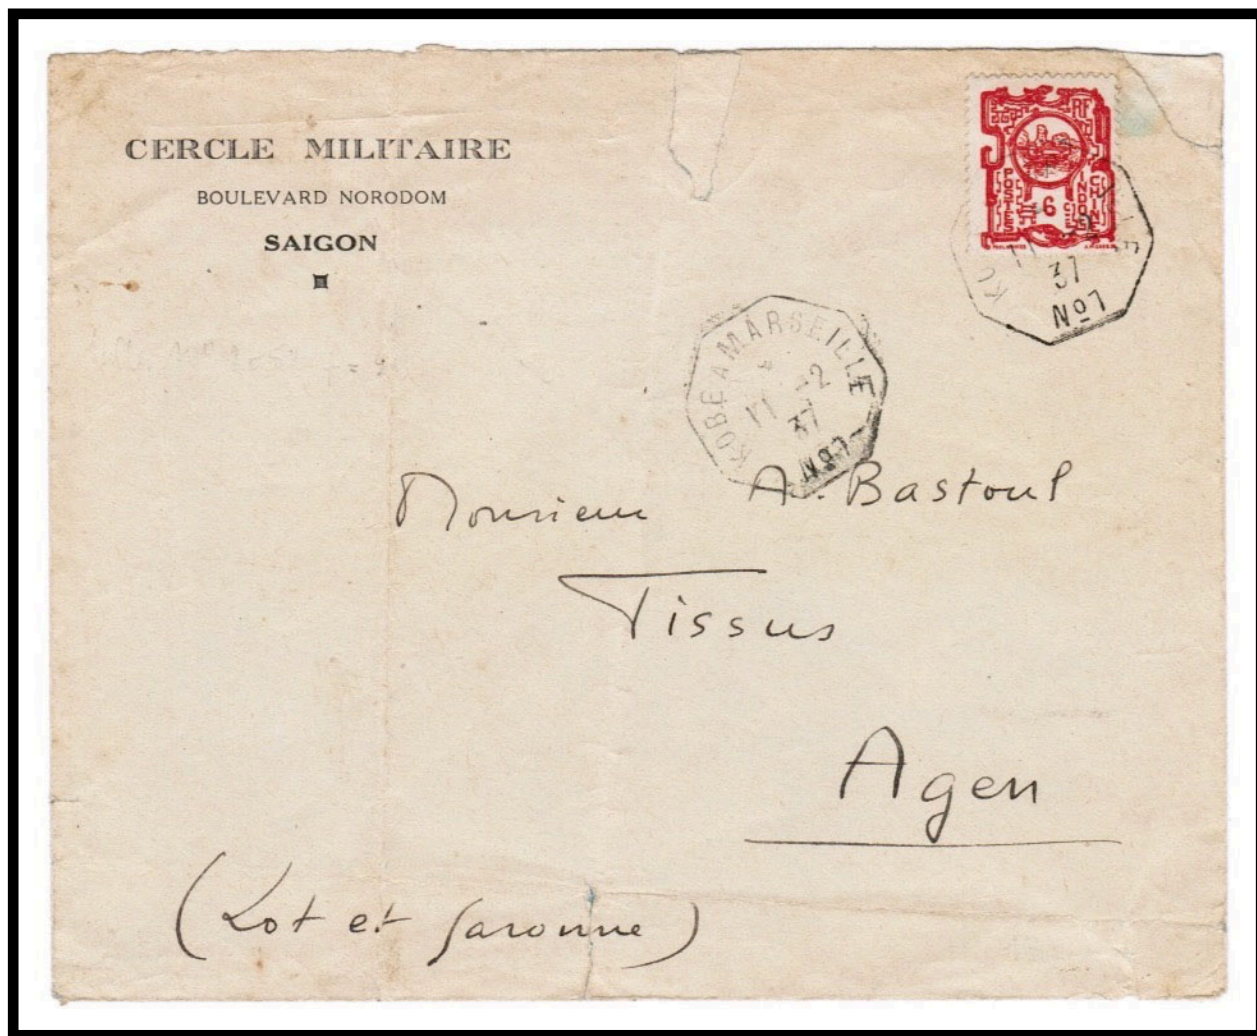 CERCLE MILITAIRE
BOULEVARD NORODOM
SAIGON
RF
POSTES
INDOCHINE
6
11 -2
37
No1
KOBE A MARSEILLE
11 -2
37
No1
Monsieur A. Bastoul
Tissus
Agen
(Lot et Garonne)